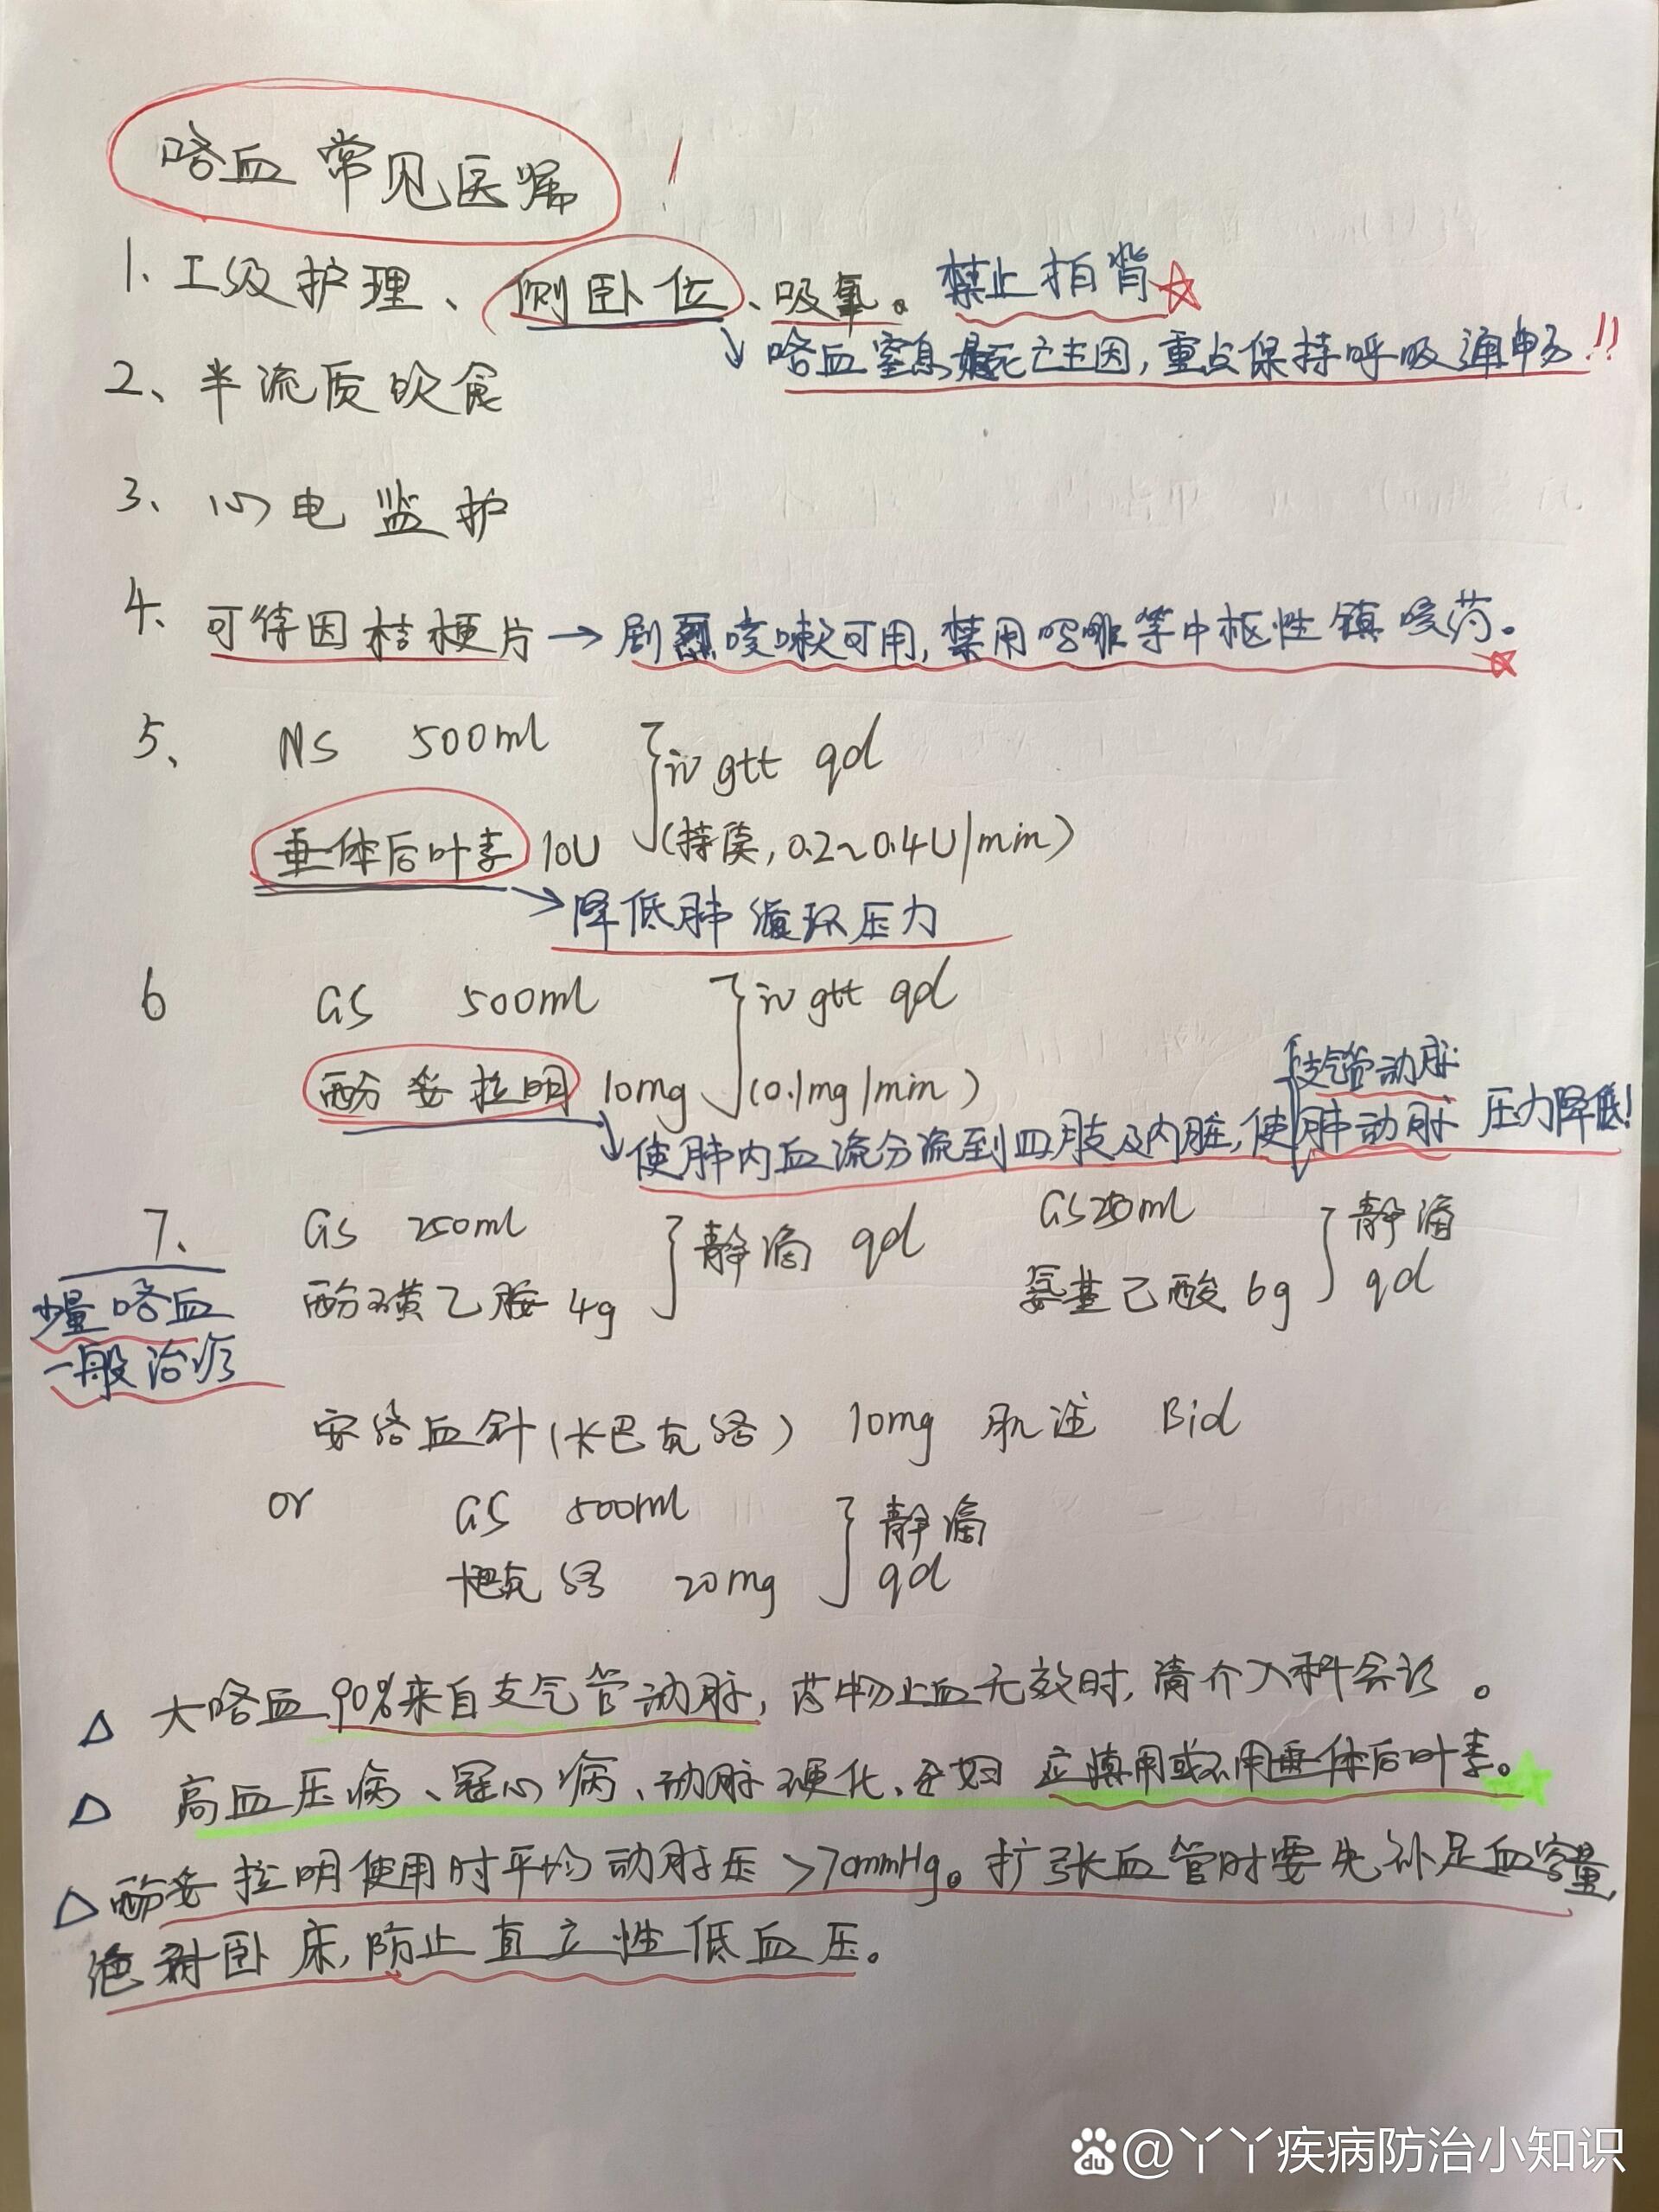 咯血常见医嘱 !
1、I级护理、侧卧位、吸氧。禁止拍背☆
↘咯血窒息是死亡主因,重点保持呼吸通畅!!
2、半流质饮食
3、心电监护
4、可待因桔梗片→剧烈咳嗽可用,禁用吗啡等中枢性镇咳药。☆
5、 NS 500ml iv gtt qd
垂体后叶素 10U (持续,0.2~0.4U/min)
→降低肺循环压力
6 GS 500ml iv gtt qd
酚妥拉明 10mg (0.1mg/min)
支气管动脉
↘使肺内血流分流到四肢及内脏,使肺动脉压力降低!
7、 GS 250ml 静滴 qd GS 250ml 静滴
酚磺乙胺 4g 氨基己酸 6g qd
少量咯血
一般治疗
安络血针(卡巴克络) 10mg 肌注 Bid
or GS 500ml 静滴
卡巴克络 20mg qd
△ 大咯血90%来自支气管动脉,药物止血无效时,请介入科会诊。
△ 高血压病、冠心病、动脉硬化、孕妇 应慎用或不用垂体后叶素。
△ 酚妥拉明使用时平均动脉压>70mmHg。扩张血管时要先补足血容量,
绝对卧床,防止直立性低血压。
du @丫丫疾病防治小知识